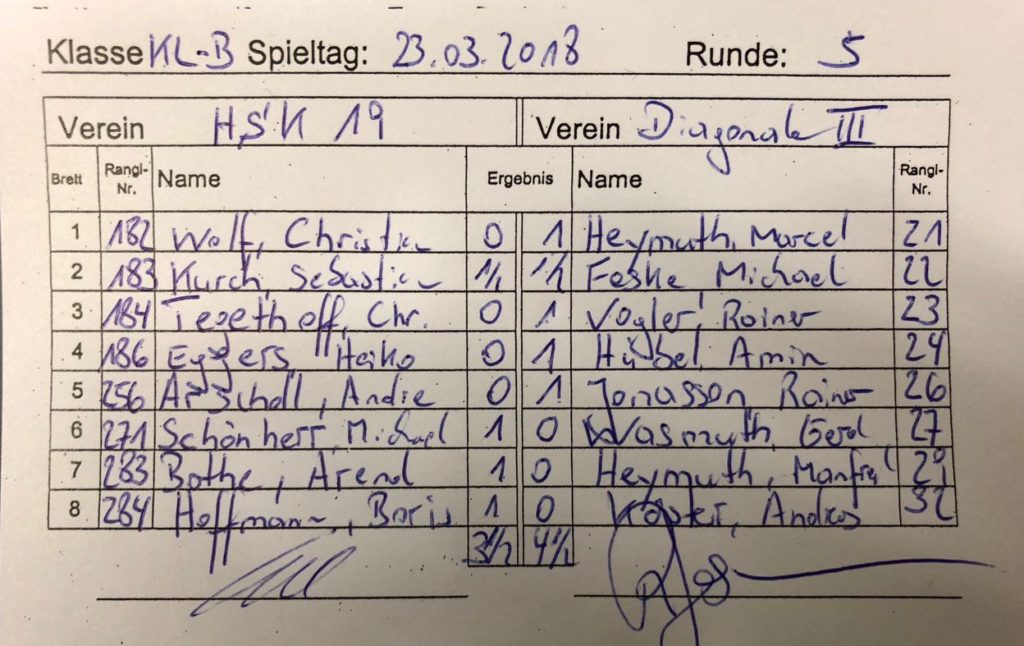 Klasse KL-B Spieltag: 23.03.2018 Runde: 5
Verein HSK 19 Verein Diagonale III
Brett Rangl-Nr. Name Ergebnis Name Rangl-Nr.
1 182 Wolf, Christian 0 1 Heymuth, Marcel 21
2 183 Kurch, Sebastian 1/2 1/2 Feske Michael 22
3 184 Tegethoff, Chr. 0 1 Vogler, Rainer 23
4 186 Eggers, Heiko 0 1 Hübel, Amin 24
5 256 Arscholl, Andre 0 1 Jonasson, Rainer 26
6 271 Schönherr, Michael 1 0 Wasmuth, Gerd 27
7 283 Bothe, Arend 1 0 Heymuth, Manfred 29
8 284 Hoffmann, Boris 1 0 Köster, Andreas 32
3 1/2 4 1/2